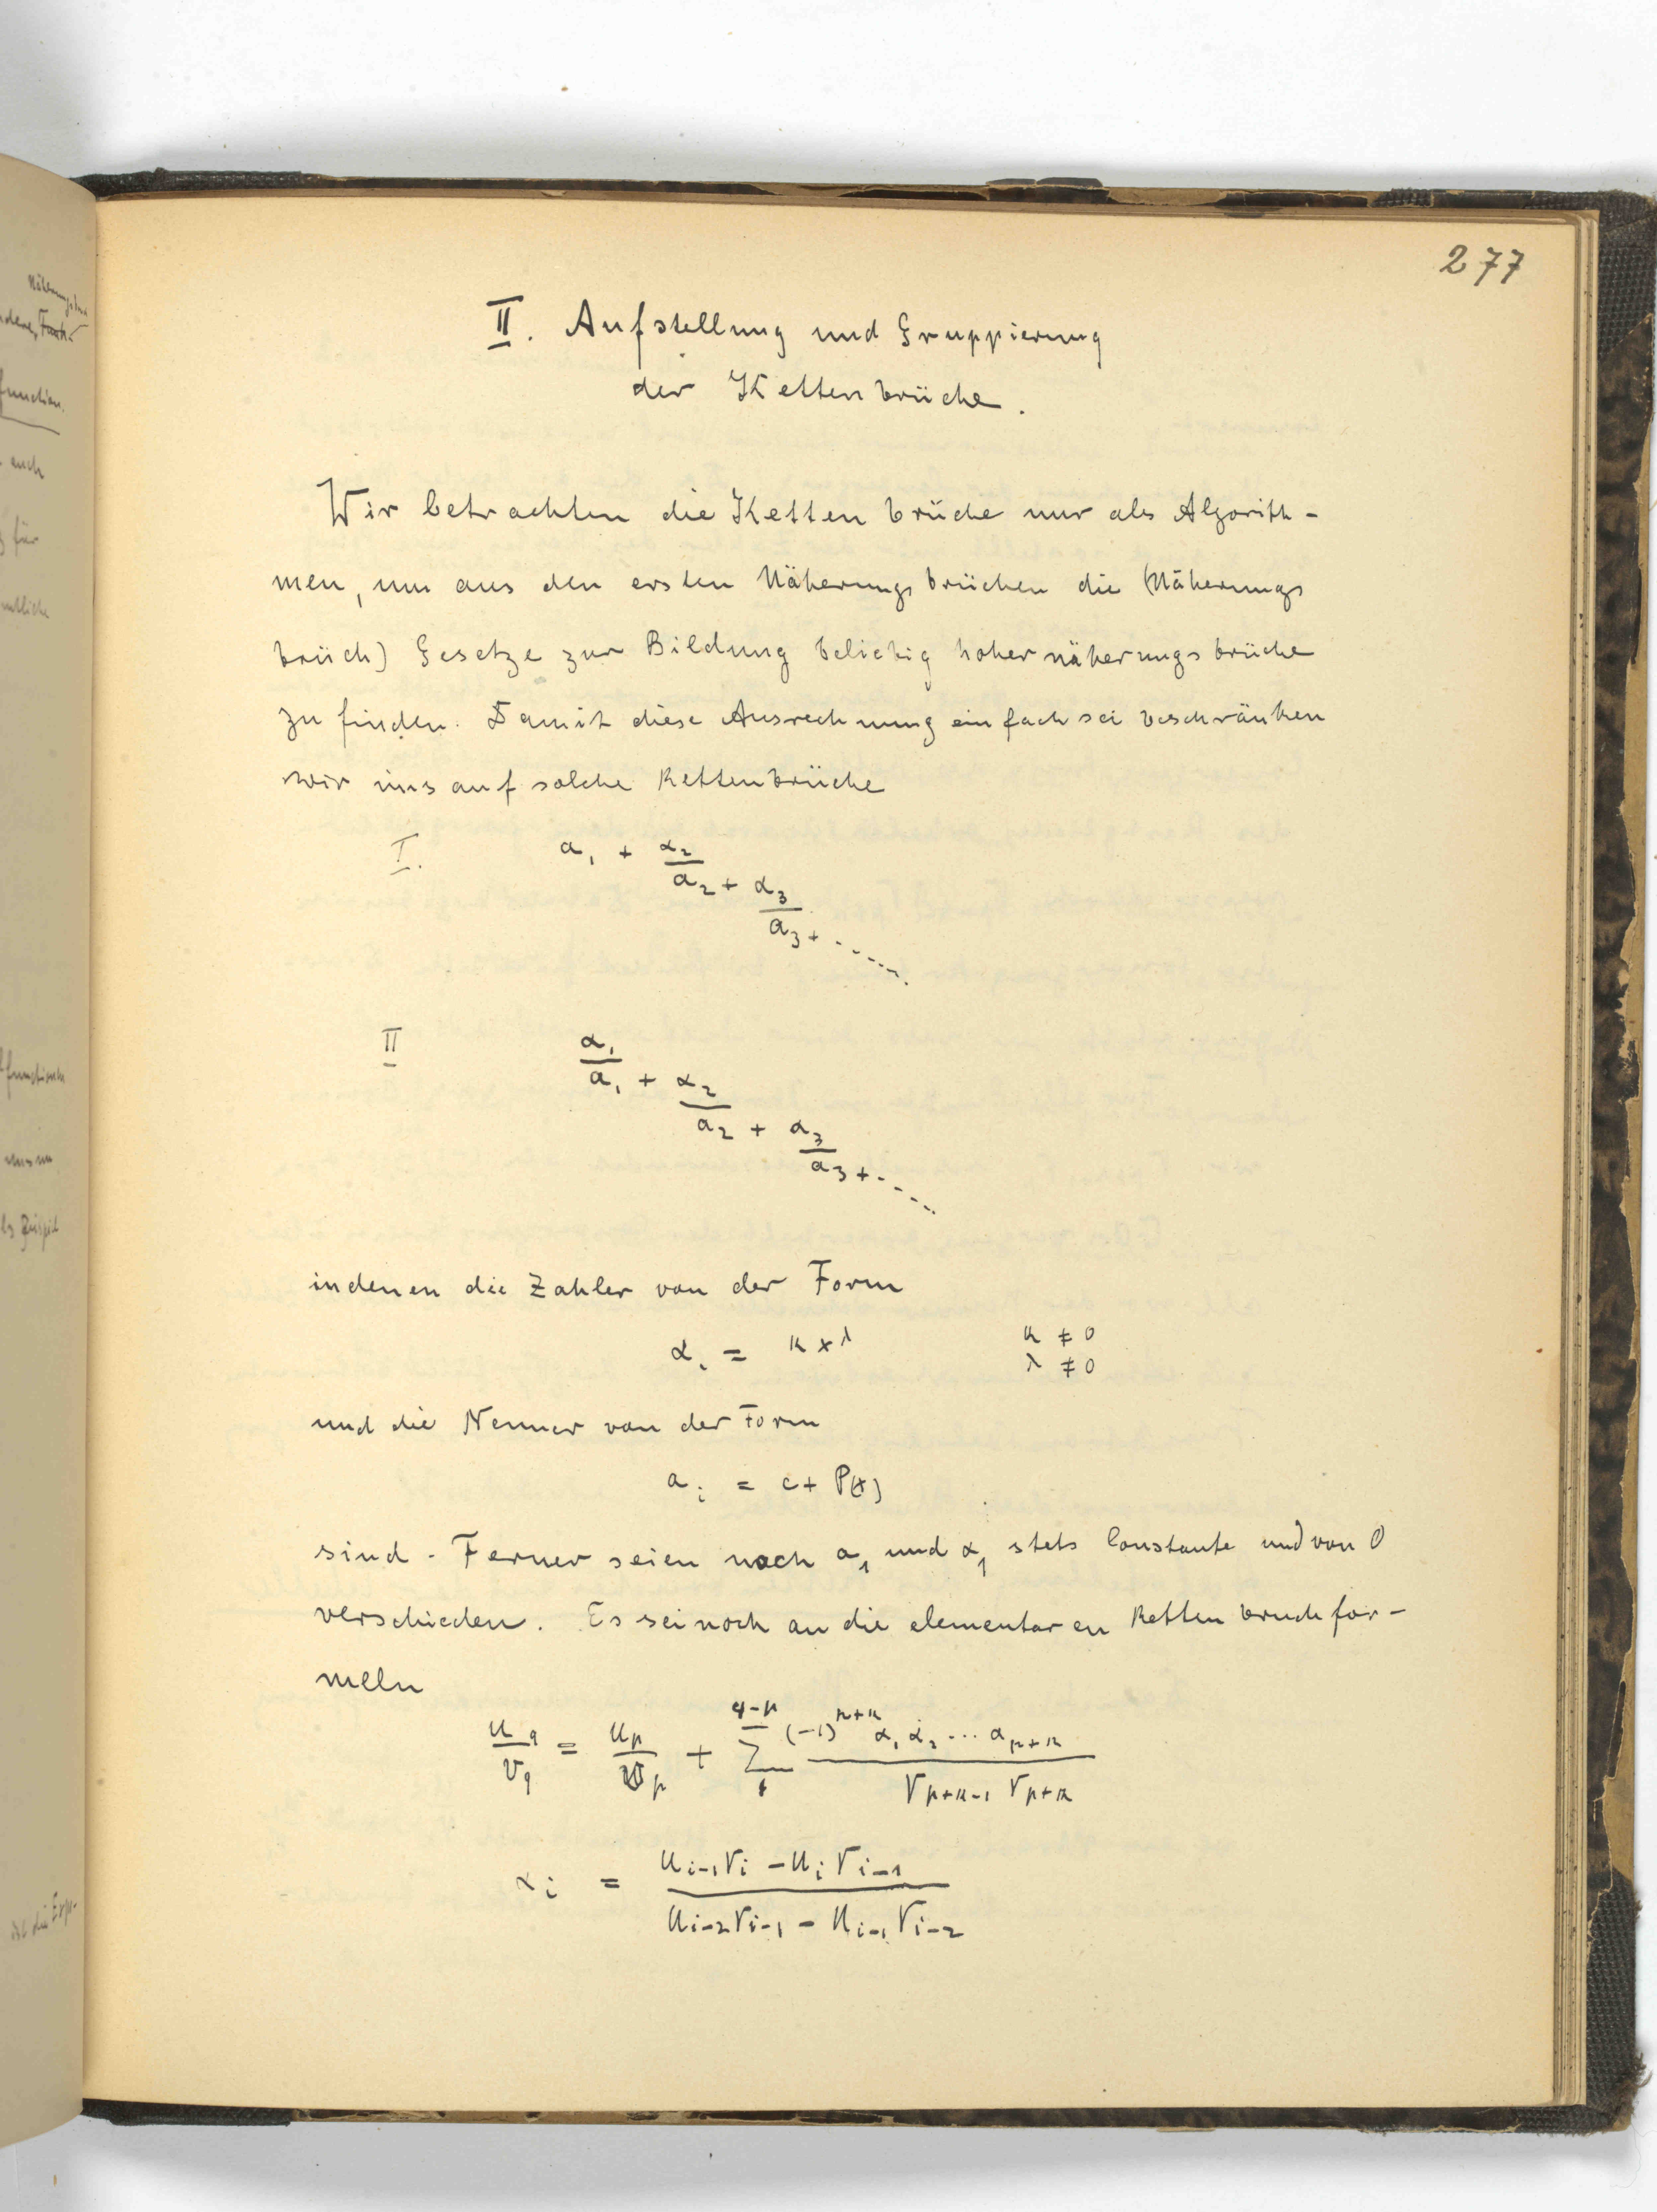 277
II. Aufstellung und Gruppierung
der Kettenbrüche.
Wir betrachten die Kettenbrüche nur als Algorith-
men, um aus den ersten Näherungsbrüchen die (Näherungs
brüch) Gesetze zur Bildung beliebig hoher näherungsbrüche
zu finden. Damit diese Ausrechnung einfach sei beschränken
wir uns auf solche Kettenbrüche
I. a₁ + α₂/(a₂ + α₃/(a₃ + ......
II α₁/(a₁ + α₂/(a₂ + α₃/(a₃ + .....
in denen die Zahler von der Form
αᵢ = k x^λ k ≠ 0
λ ≠ 0
und die Nenner von der Form
aᵢ = c + P(x)
sind. Ferner seien noch a₁ und α₁ stets Constante und von 0
verschieden. Es sei noch an die elementaren Kettenbruchfor-
meln
u_q/v_q = u_p/v_p + Σ_1^{q-p} (-1)^{p+k} α₁ α₂ ... α_{p+k} / (v_{p+k-1} v_{p+k})
αᵢ = (u_{i-1} v_i - u_i v_{i-1}) / (u_{i-2} v_{i-1} - u_{i-1} v_{i-2})
function.
auch
für